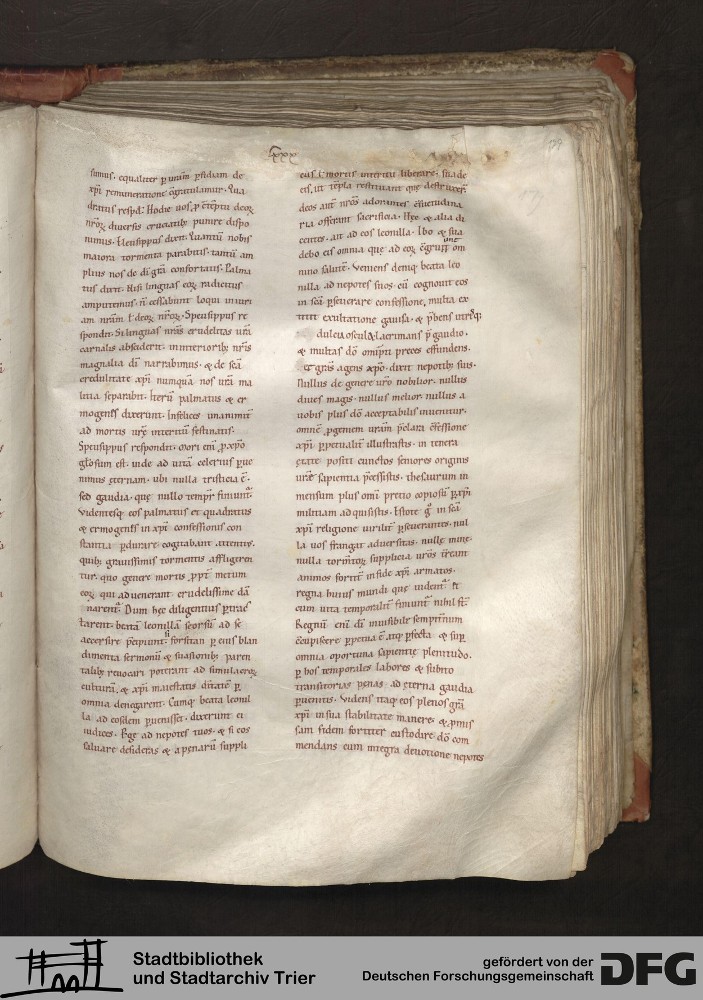 LXXX
simus, equaliter ꝑ unam ꝑfidiam de
xp̄i remuneratione c̄gratulamur. Qua
dratus respd̄. Hodie uos ꝓ c̄tēptu deoꝝ
nr̄oꝝ diuersis cruciatibꝫ punire dispo
nimus. Heleusippus dixit. Quantū nobis
maiora tormenta parabitis. tantū am
plius nos de dī gr̄a confortatis. Palma
tus dixit. Nisi linguas eoꝝ radicitus
amputemus. n̄ cessabunt loqui iniuri
am nrām ł deoꝝ nr̄oꝝ. Speusippus re
spondit. Si linguas nrās crudelitas ur̄a
carnalis absciderit. in interioribꝫ nrīs
magnalia dī narrabimus. & de scā
credulitate xp̄i numquā nos ur̄a ma
litia separabit. Iterū palmatus & er
mogenes dixerunt. Infelices unanimit̄
ad mortis urę interitū festinatis.
Speusippus respondit. Mori enī ꝓ xp̄o
gl̄osum est. unde ad uitā celerius ꝑue
nimus ęternam. ubi nulla tristicia ē.
sed gaudia. quę nullo tempr̄ finiunt᷑.
Videntesqꝫ eos palmatus et quadratus
& ermogenes in xp̄i confessionis con
stantia ꝑdurare. cogitabant attentius.
quibꝫ grauissimis tormentis affligeren
tur. quo genere mortis ꝓpt̄ metum
eoꝝ qui aduenerant crudelissime dā
narent᷑. Dum hęc diligentius ꝑtrac
tarent. beatā leonillā seorsū ad se
accersire p̄cipiunt. si forsitan ꝑ eius blan
dimenta sermonū & suasionibꝫ paren
talibꝫ reuocari potirant ad simulacroꝝ
culturā. & xp̄i maiestatis diūtatē ꝑ
omnia denegarent. Cumqꝫ beata leonil
la ad eosdem ꝑuenisset. dixerunt ei
iudices. Ꝑge ad nepotes tuos. & si eos
saluare desideras & a penarū suppli
eiꝰ ł mortis interitu liberare. suade
eis. ut tēpla restituant que destruxert̄
deos aūt nrōs adorantes c̄suetudina
ria offerant sacrificia. Hęc & alia di
centes. ait ad eos leonilla. Ibo & sua
debo eis omnia quę ad eoꝝ c̄gruunt om
nino salutē. Veniens deniqꝫ beata leo
nilla ad nepotes suos. cū cognouit eos
in scā ꝑseuerare confessione. multa ex
titit exultatione gauisa. & p̄bens utrisqꝫ
dulcia oscula & lacrimans p̄ gaudio.
& multas dō omīpt̄i preces effundens.
& grās agens xp̄o. dixit nepotibꝫ suis.
Nullus de genere urō nobilior. nullus
diues magis. nullus melior nullus a
uobis plus dō acceptabilis inuenitur.
omnē ꝓgeniem urām p̄clara c̄fessione
xp̄i ꝑpetualit̄ illustrastis. in tenera
ętate positi cunctos seniores originis
urāe sapientia p̄cessistis. thesaurum in
mensum plus omī pretio copiosū ꝑ xp̄i
militiam adquisistis. Estote g̊ in scā
xp̄i religione uirilit̄ ꝑseuerantes. nul
la uos frangat aduersitas. nullę minę.
nulla tormt̄oꝝ supplicia urōs t̄reant
animos fortit̄ in fide xp̄i armatos.
regna huius mundi quę uident᷑ &
cum uita temporalit̄ finiunt᷑ nihil st̄.
Regnū enī dī inuisibile sempit̄num
c̄cupiscere ꝑpetua ē. atqꝫ ꝑfecta & sup̄
omnia oportuna sapientię plenitudo.
ꝑ hos temporales labores & subito
transitorias penas. ad ęterna gaudia
ꝑuenitis. Videns itaqꝫ eos plenos gr̄a
xp̄i in sua stabilitate manere. & ꝓmis
sam fidem fortiter custodire. dō com
mendans cum integra deuotione nepotes
Stadtbibliothek
und Stadtarchiv Trier
gefördert von der
Deutschen Forschungsgemeinschaft
DFG